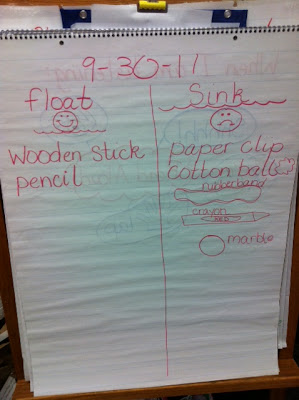 9-30-11
float
Sink
wooden stick
pencil
paper clip
cotton balls
rubber band
crayon
RED
marble